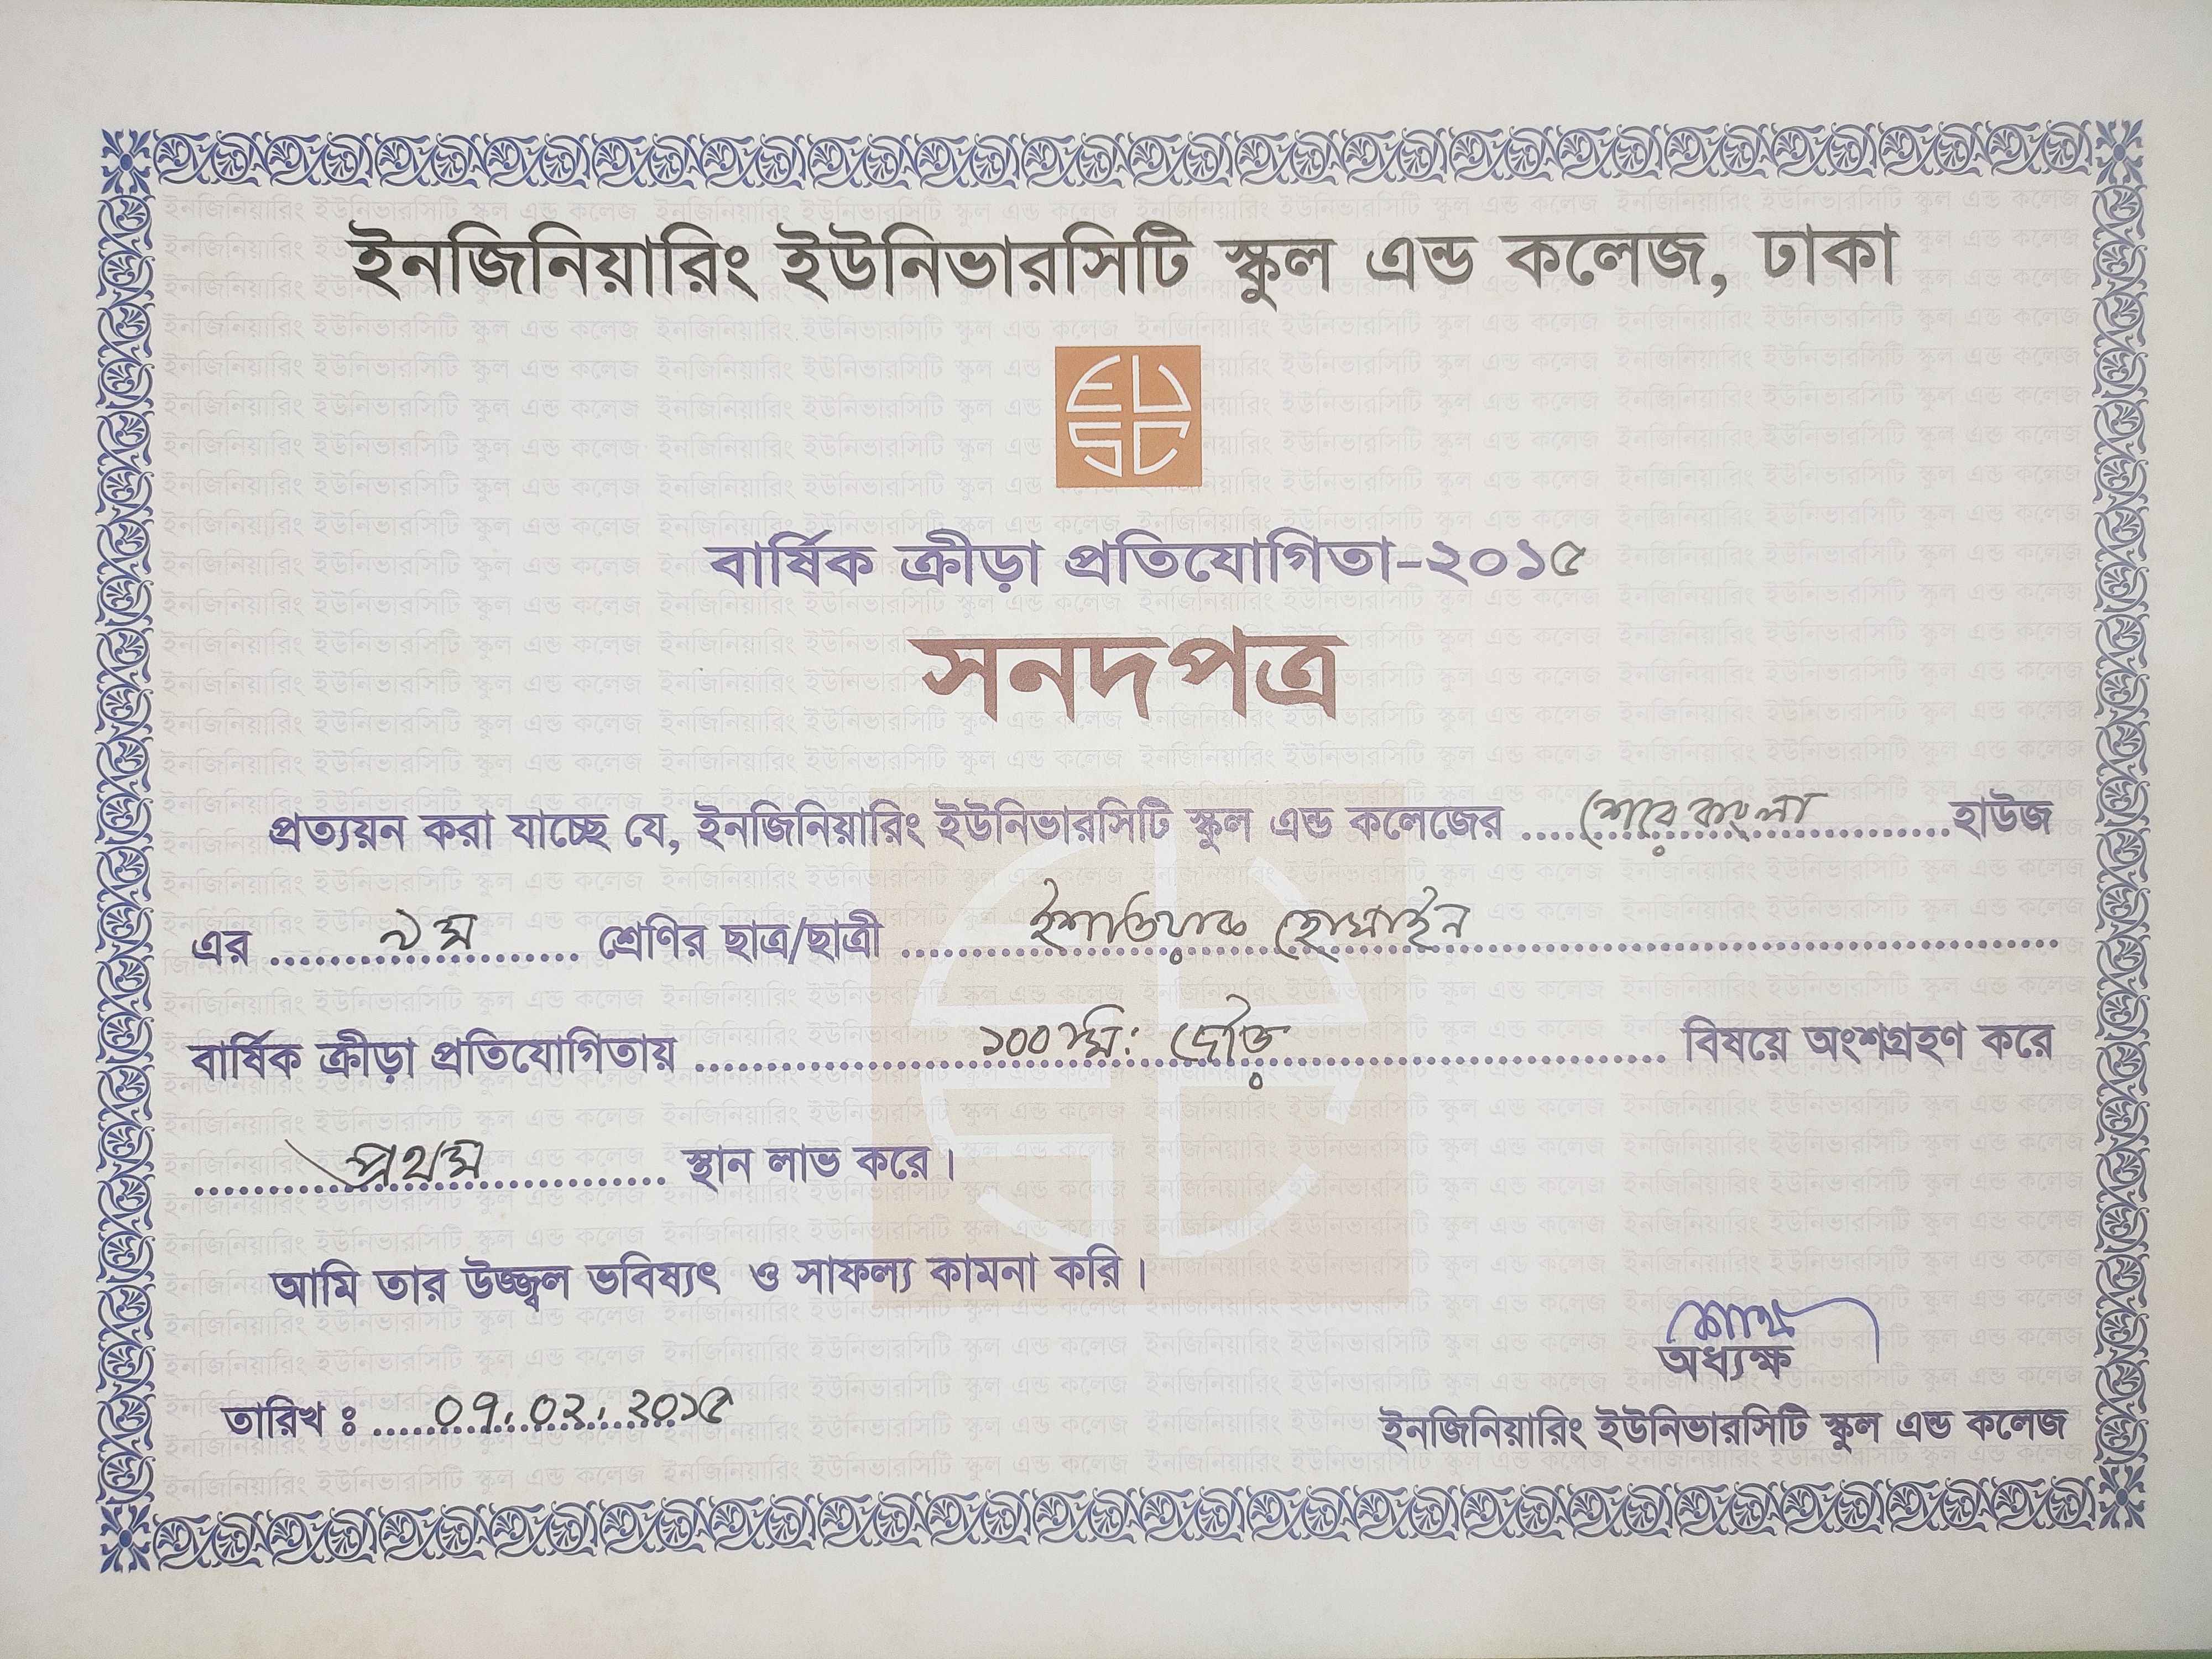 ইনজিনিয়ারিং ইউনিভারসিটি স্কুল এন্ড কলেজ, ঢাকা
EUSC
বার্ষিক ক্রীড়া প্রতিযোগিতা-২০১৫
সনদপত্র
প্রত্যয়ন করা যাচ্ছে যে, ইনজিনিয়ারিং ইউনিভারসিটি স্কুল এন্ড কলেজের শেরে বাংলা হাউজ
এর ৯ম শ্রেণির ছাত্র/ছাত্রী হোসাইন
বার্ষিক ক্রীড়া প্রতিযোগিতায় ১০০ মি: দৌড় বিষয়ে অংশগ্রহণ করে
প্রথম স্থান লাভ করে।
আমি তার উজ্জ্বল ভবিষ্যৎ ও সাফল্য কামনা করি।
অধ্যক্ষ
তারিখ ঃ ০৭.০২.২০১৫
ইনজিনিয়ারিং ইউনিভারসিটি স্কুল এন্ড কলেজ